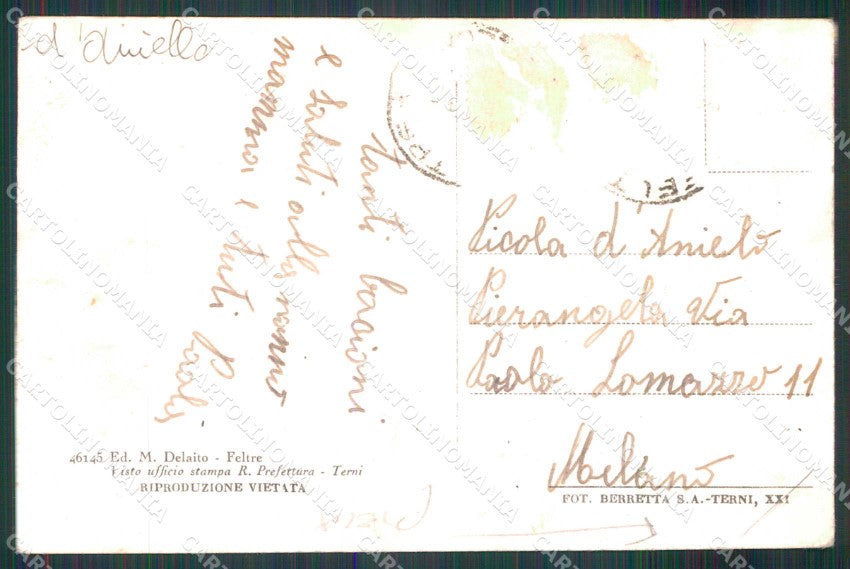 d'Aniello
tanti bacioni
e saluti alla nonna
mamma e tutti Paoli
Picola d'Anielo
Pierangela Via
Paolo Lomazzo 11
Milano
46145 Ed. M. Delaito - Feltre
Visto ufficio stampa R. Prefettura - Terni
RIPRODUZIONE VIETATA
FOT. BERRETTA S.A.-TERNI, XXI
CARTOLINOMANIA